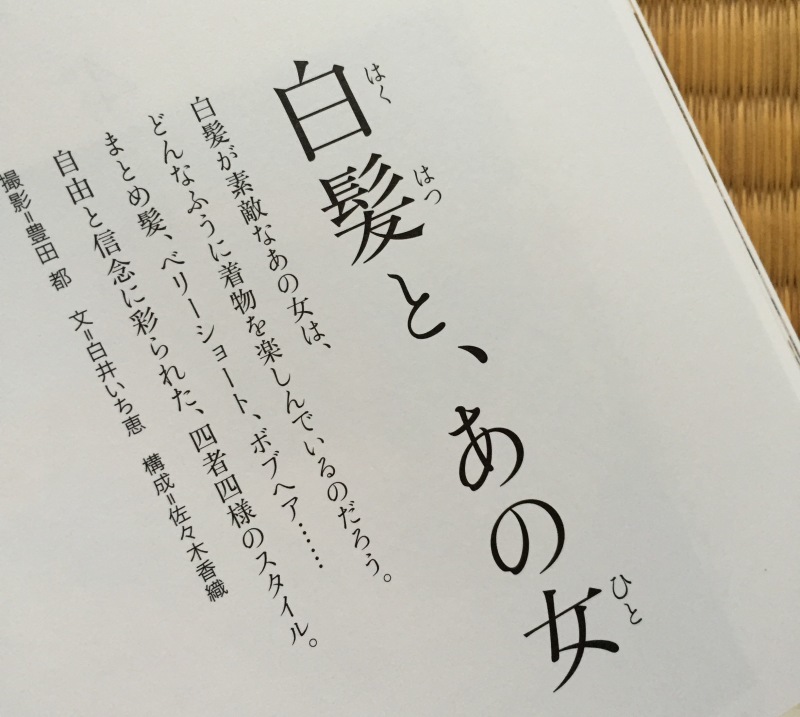 白髪と、あの女
はくはつ
ひと
白髪が素敵なあの女は、
どんなふうに着物を楽しんでいるのだろう。
まとめ髪、ベリーショート、ボブヘア……
自由と信念に彩られた、四者四様のスタイル。
撮影=豊田 都　文=白井いち恵　構成=佐々木香織